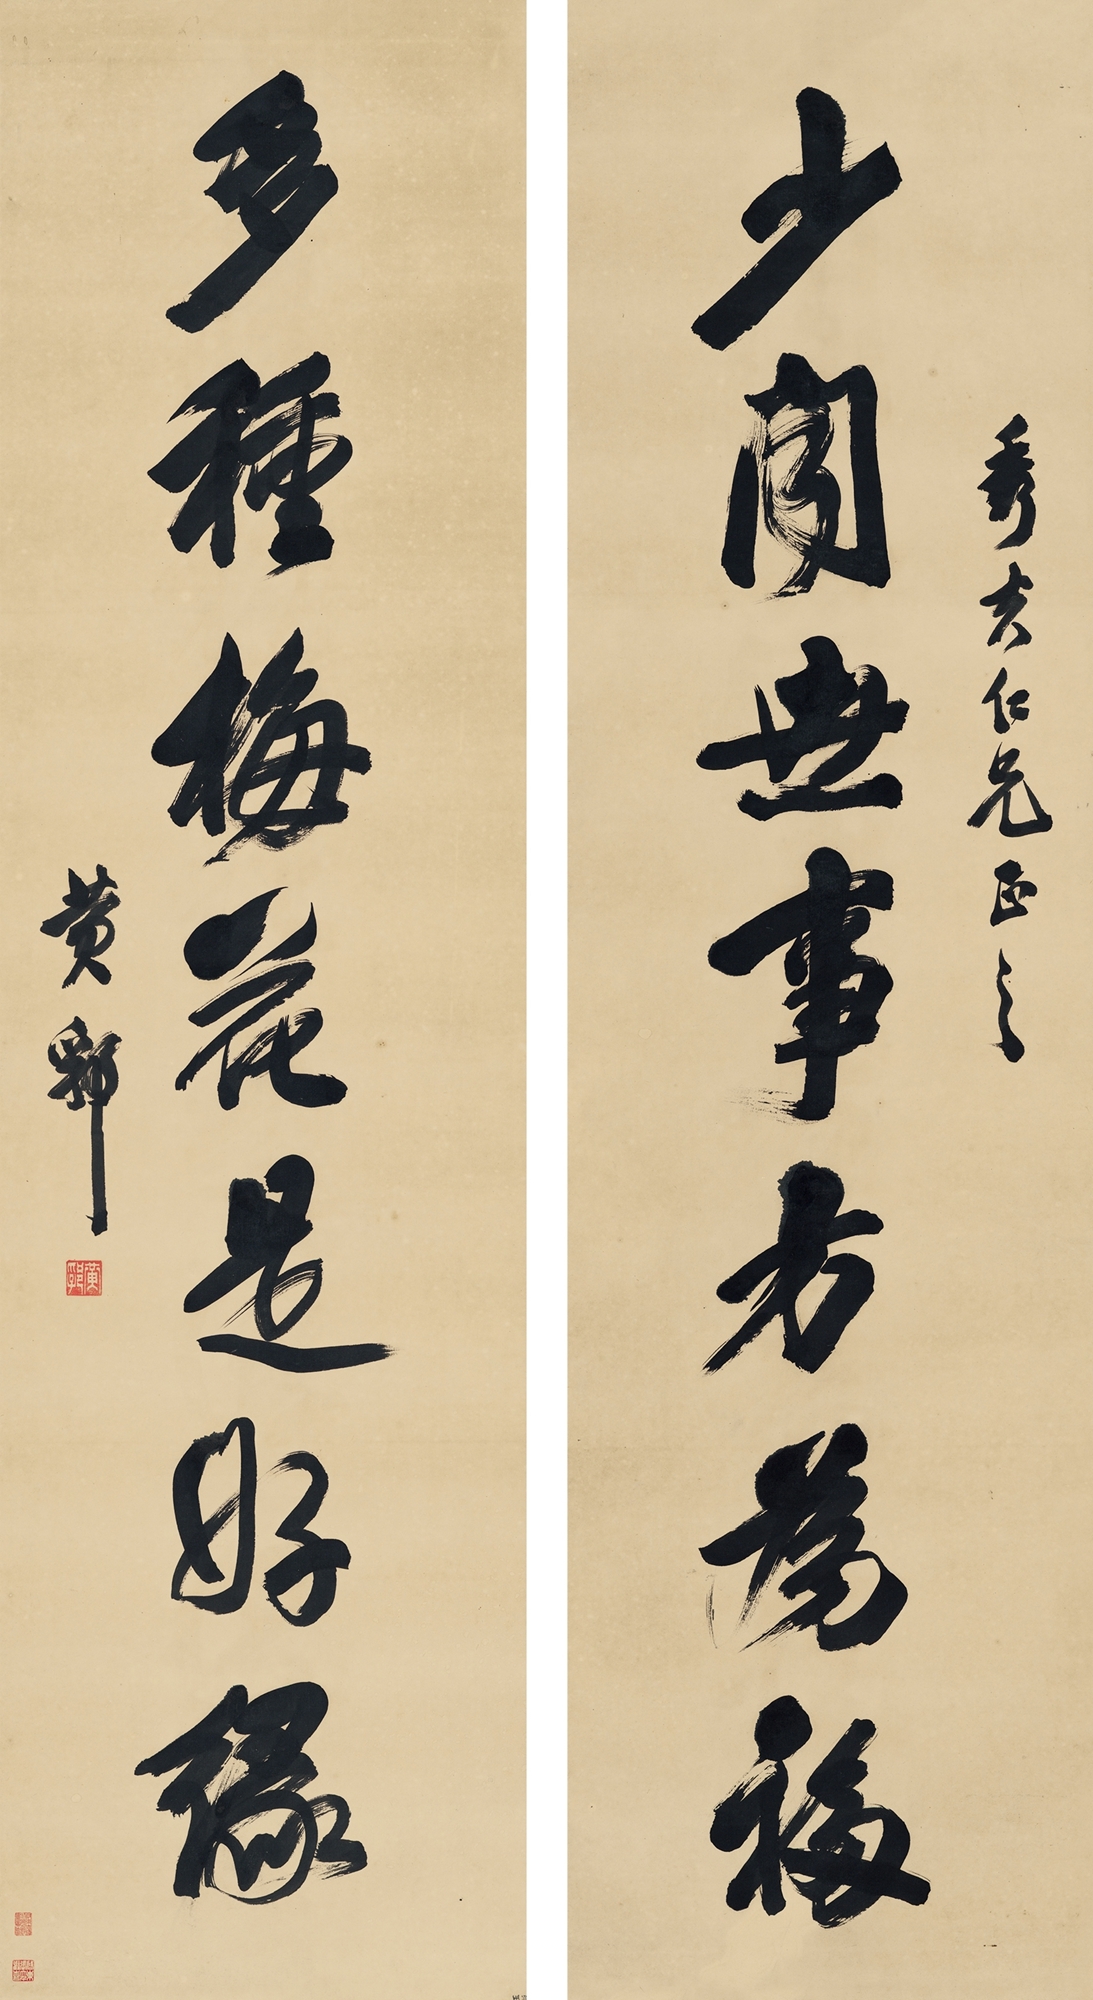 秀夫仁兄正之
少聞世事方為福
多種梅花是好緣
黃郛
黃郛